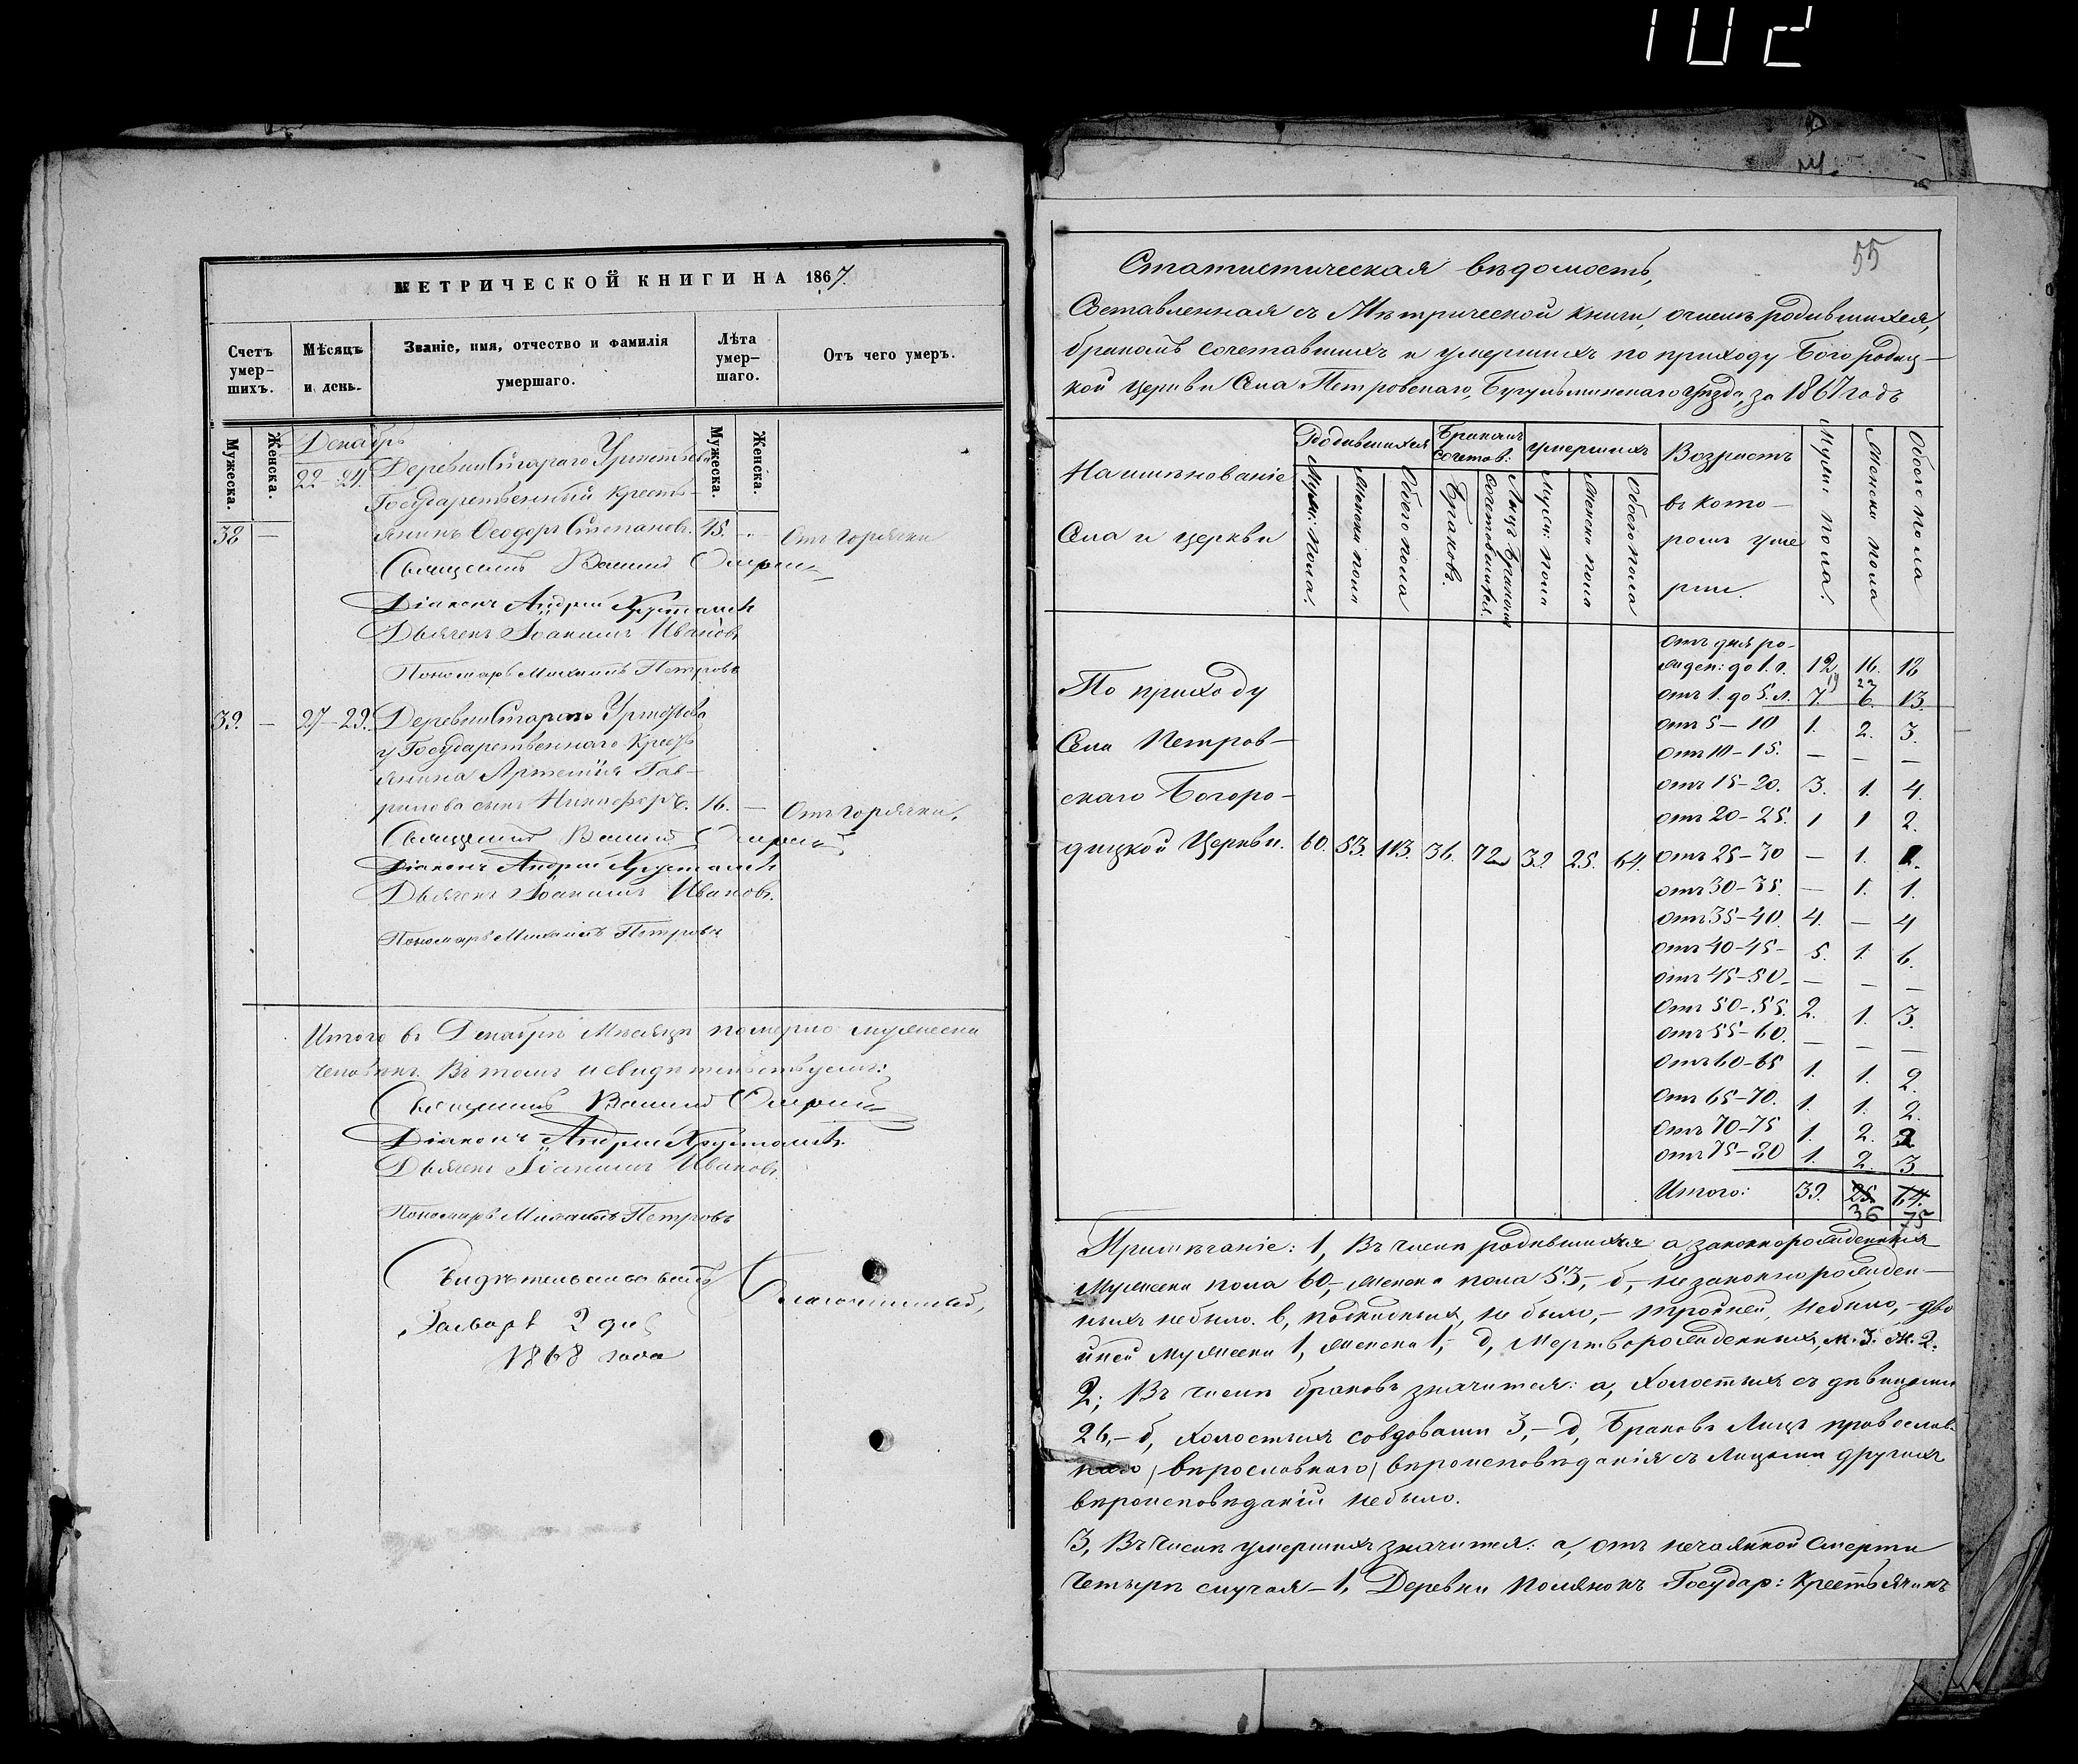 102
МЕТРИЧЕСКОЙ КНИГИ НА 1867.
Счетъ умер-шихъ.
Мѣсяцъ и день.
Званіе, имя, отчество и фамилія умершаго.
Лѣта умер-шаго.
Отъ чего умеръ.
Мужеска.
Женска.
Мужеска.
Женска.
Декабрь
22-24.
Деревни Стараго
Государственный кресть-
38 — янинъ Ѳеодоръ Степановъ. 45. - Отъ горячки
Священникъ
Діаконъ Андрей
Дьячекъ Іоакимъ Ивановъ
Пономарь Михаилъ Петровъ
39. — 27-29. Деревни Стараго
у Государственнаго Кресть
янина Артемія Гав-
рилова сынъ Никифоръ. 16. — Отъ горячки.
Священникъ
Діаконъ Андрей
Дьячекъ Іоакимъ Ивановъ.
Пономарь Михаилъ Петровъ
Итого въ Декабрѣ Мѣсяцѣ померло мужеска
человѣкъ. Въ томъ и свидѣтельствуемъ:
Священникъ
Діаконъ Андрей
Дьячекъ Іоакимъ Ивановъ.
Пономарь Михаилъ Петровъ
Благочинный,
Января 2 дня
1868 года
55
Статистическая вѣдомость,
Составленная съ Метрической книги, о числѣ родившихся,
бракомъ сочетавшихъ и умершихъ по приходу Богородиц-
кой церкви Села Петровскаго, Бугульминскаго Уѣзда, за 1867 годъ
Наименованіе
Села и церкви
Родившихся
Бракомъ Сочетав:
Умершихъ
Возрастъ
въ кото-
ромъ уме
рли.
Мужс: пола.
Женска пола
Обоего пола
Браковъ.
Лицъ бракомъ сочетавшихся.
Мужс: пола
Женска пола
Обоего пола
Мужс: пола.
Женска пола
Обоего пола
По приходу
Села Петров-
скаго Богоро-
дицкой Церкви. 60. 53. 113. 36. 72 39. 25. 64.
Отъ дня ро-
жден: до 1. г. 12 16. 18
19 22
отъ 1. до 5. л. 7. 6. 13.
отъ 5-10 1. 2. 3.
отъ 10-15. — — —
отъ 15-20. 3. 1. 4.
отъ 20-25. 1 1 2.
отъ 25-30 — 1. 1.
отъ 30-35. — 1. 1.
отъ 35-40. 4. — 4
отъ 40-45- 5. 1. 6.
отъ 45-50- — — —
отъ 50-55. 2. 1. 3.
отъ 55-60. — — —
отъ 60-65 1. 1. 2.
отъ 65-70. 1. 1. 2.
отъ 70-75 1. 2. 3
отъ 75-80 1. 2. 3.
Итого: 39. 25. 64.
36 75
Примѣчаніе: 1, Въ числѣ родившихся а, законнорожденныхъ
Мужеска пола 60,- женска пола 53,- б,- незаконнорожден-
ныхъ небыло. в, подкидныхъ, не было,- тройней, небыло,- дво
йней мужеска 1, женска 1,- д, Мертворожденныхъ, м. 3. ж. 2.
2; Въ числѣ браковъ значится: а, Холостыхъ съ дѣвицами
26,- б, холостыхъ совдовами 3,- д, Браковъ Лицъ православ-
наго вѣроисповѣданія съ Лицами другихъ
вѣроисповѣданій небыло.
3, Въ числѣ умершихъ значится: а, отъ нечаянной Смерти
Четыре случая- 1, Деревни Полянокъ Государ: Крестьянинъ